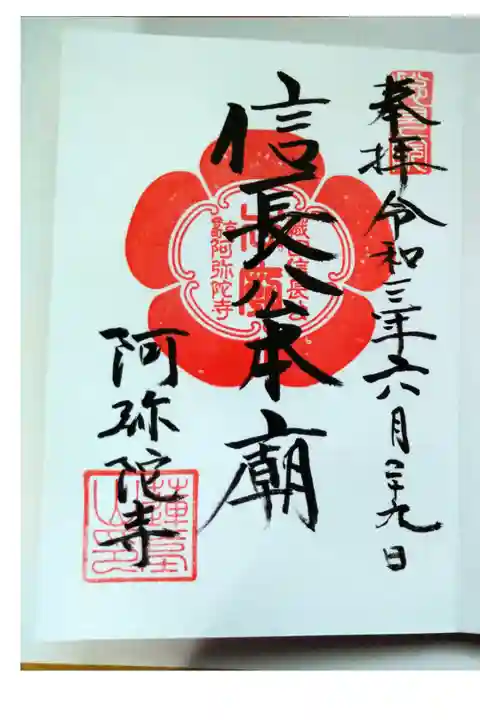 奉拝 令和三年六月二十九日
信長公本廟
織田信長公
本廟
阿弥陀寺
阿弥陀寺
蓮台山